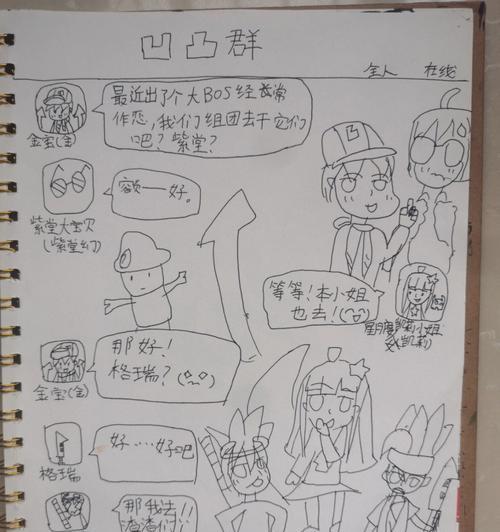 凹凸群
全人 在线
最近出了个大BOS经常
作恶,我们组团去干它们
吧?紫堂?
金宝(金)
额——好。
紫堂大宝贝
(紫堂幻)
等等!本小姐
也去!
小姐
凯莉
那好!
格瑞?
金宝(金)
好…好吧
格瑞
那我去!!
渣渣们!!